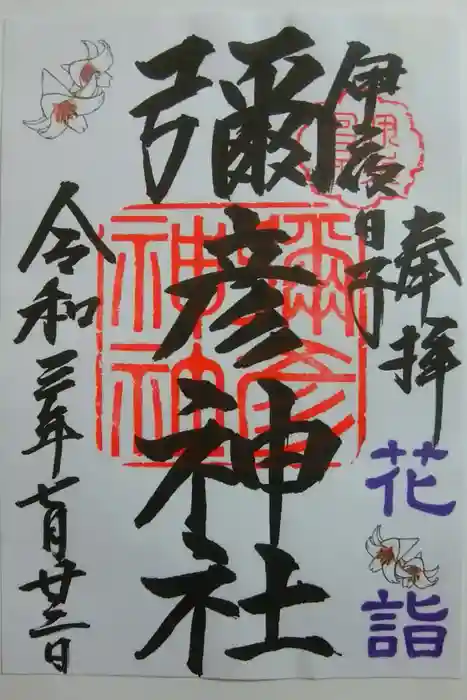 奉拝
花詣
伊夜日子
彌彦神社
彌彦
神社
令和三年七月廿三日